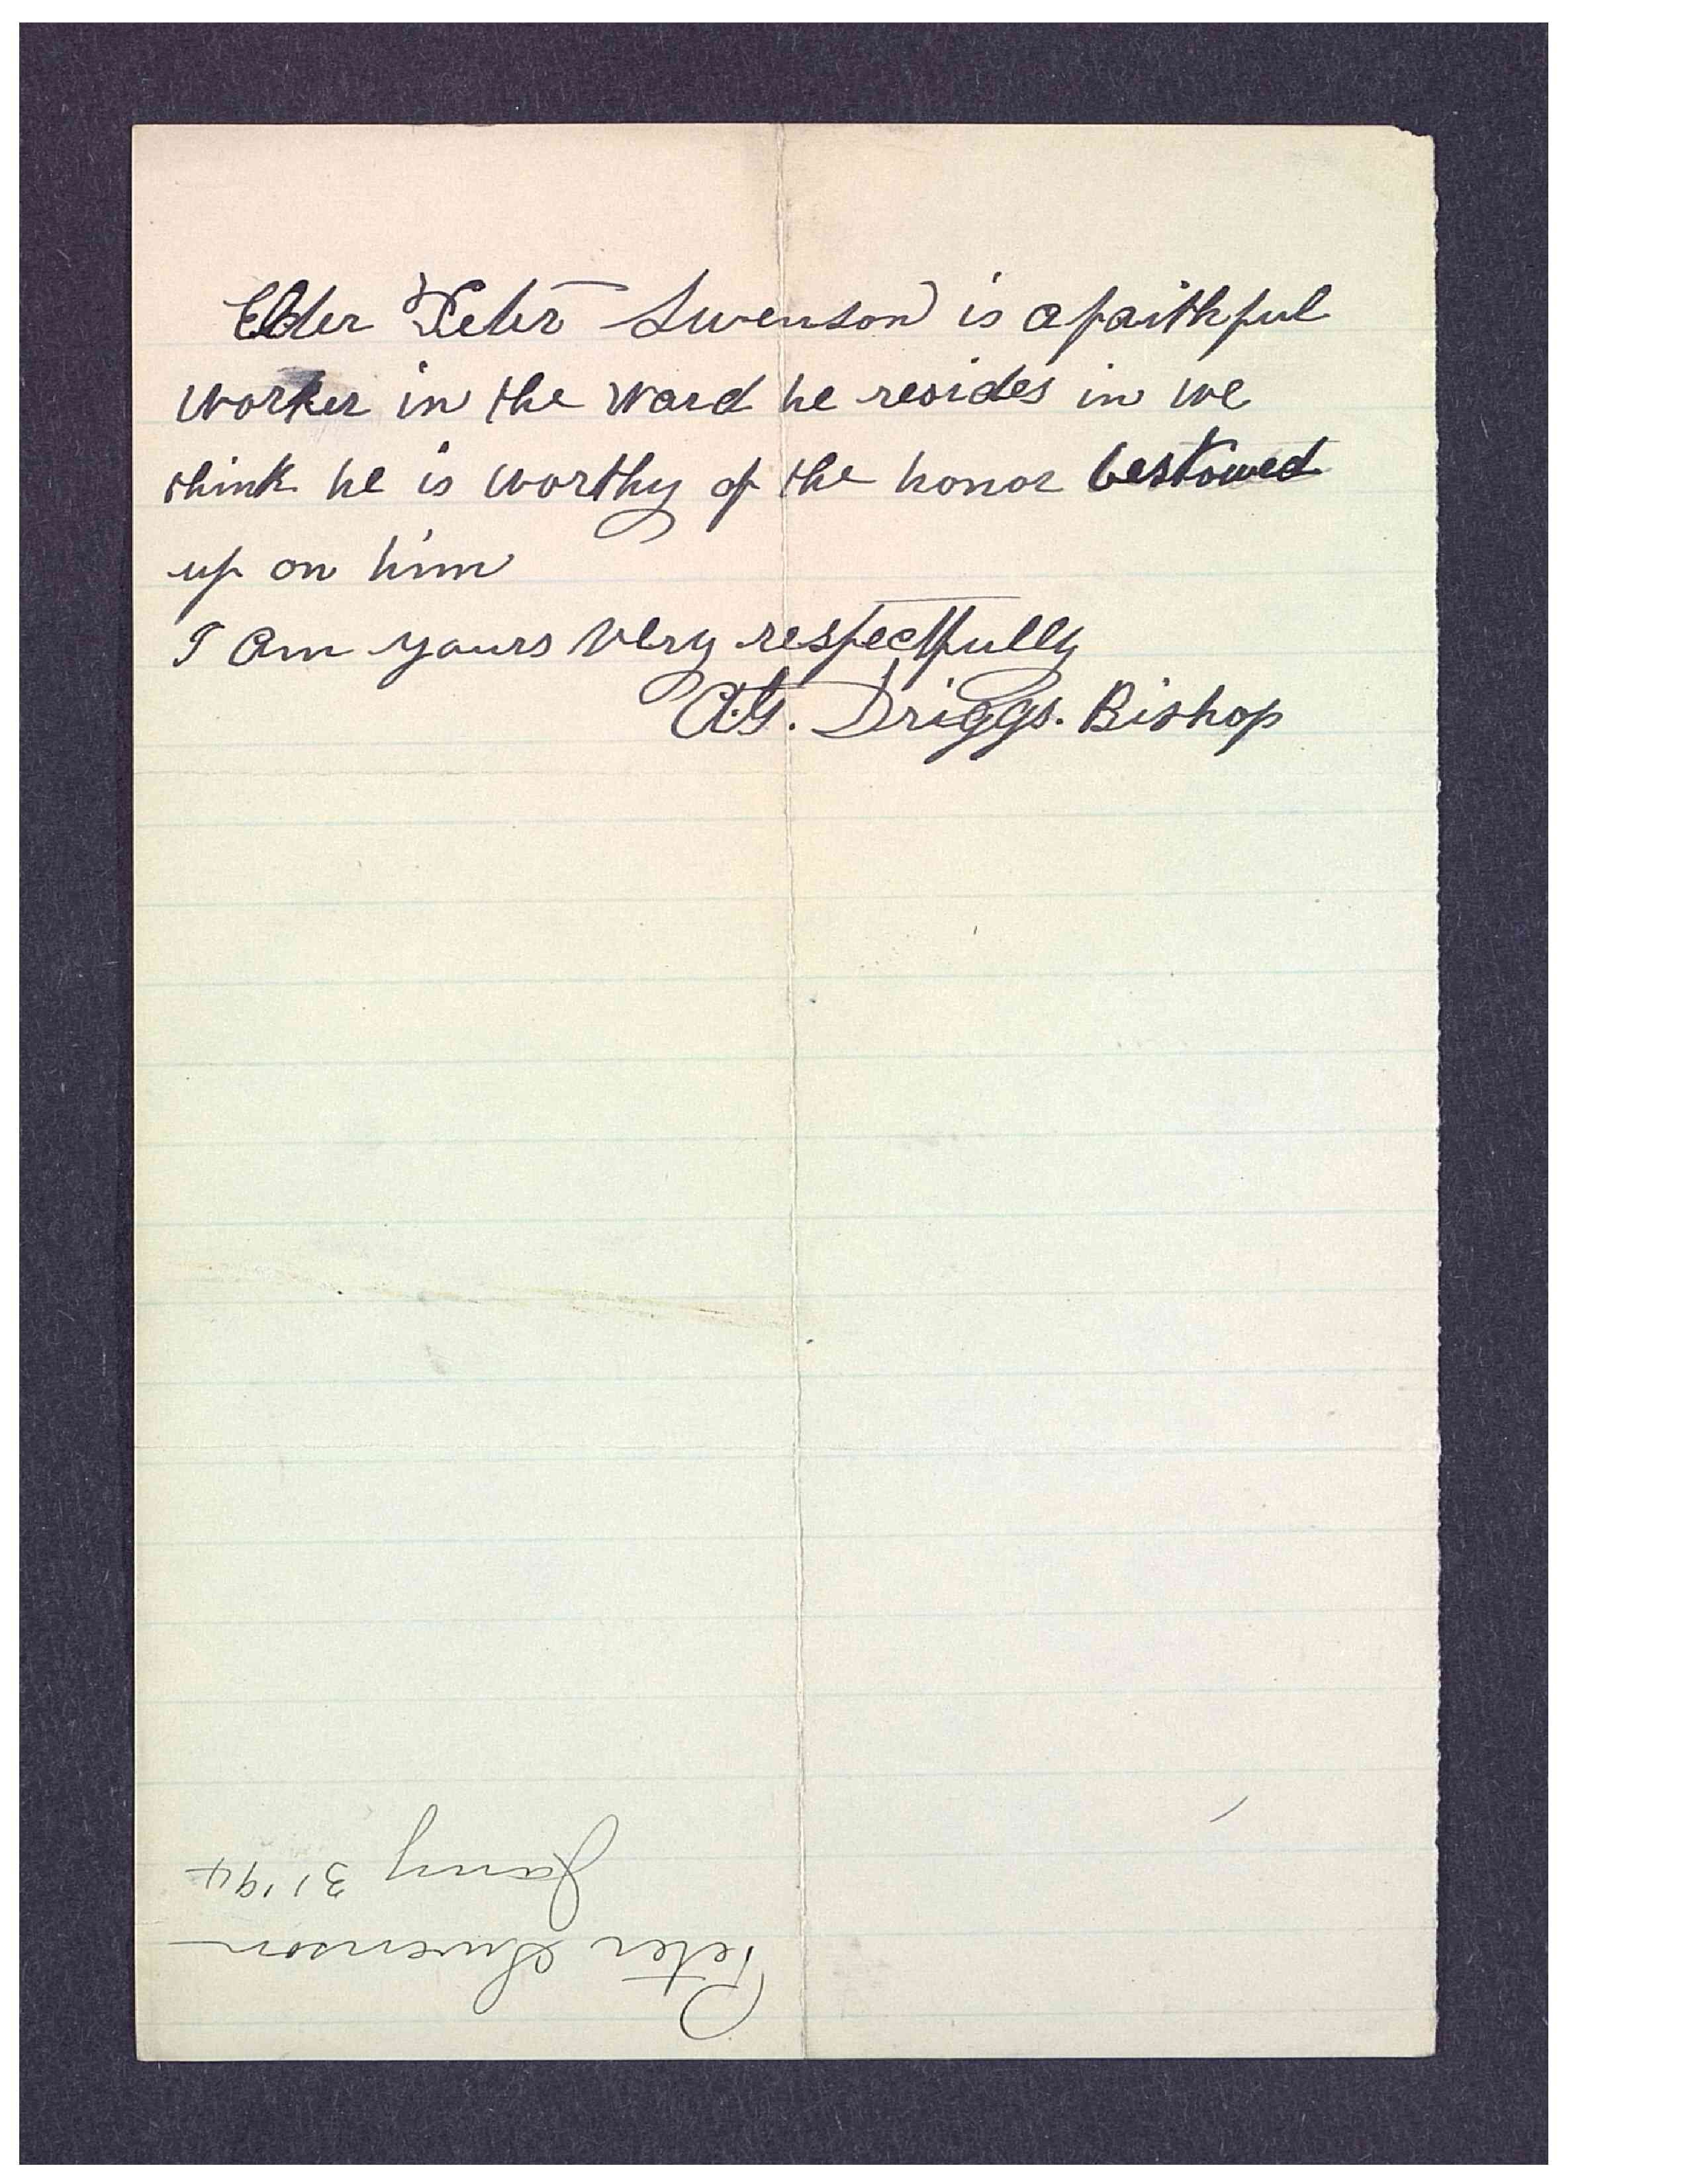 Elder Peter Swenson is a faithful
worker in the ward he resides in we
think he is worthy of the honor bestowed
up on him
I am yours very respectfully
A.G. Driggs. Bishop
Peter Swenson
Jany 31 '94